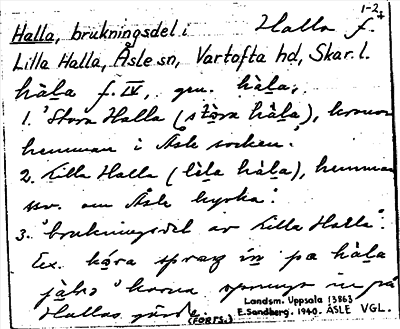 1-2
Halla, brukningsdel i Halla f.
Lilla Halla, Åsle sn, Vartofta hd, Skar. l.
hàla f. IV, gen. hàla;
1. "Stora Halla (stòra hàla), krono-
hemman i Åsle socken".
2. Lilla Halla (lìla hàla), hemman
ssv. om Åsle kyrka".
3. "brukningsdel av Lilla Halla".
Ex. in på hàla
"korna sprungo in på
Hallas gärde
(FORTS.)
Landsm. Uppsala 13863
E. Sandberg. 1940. ÅSLE VGL.